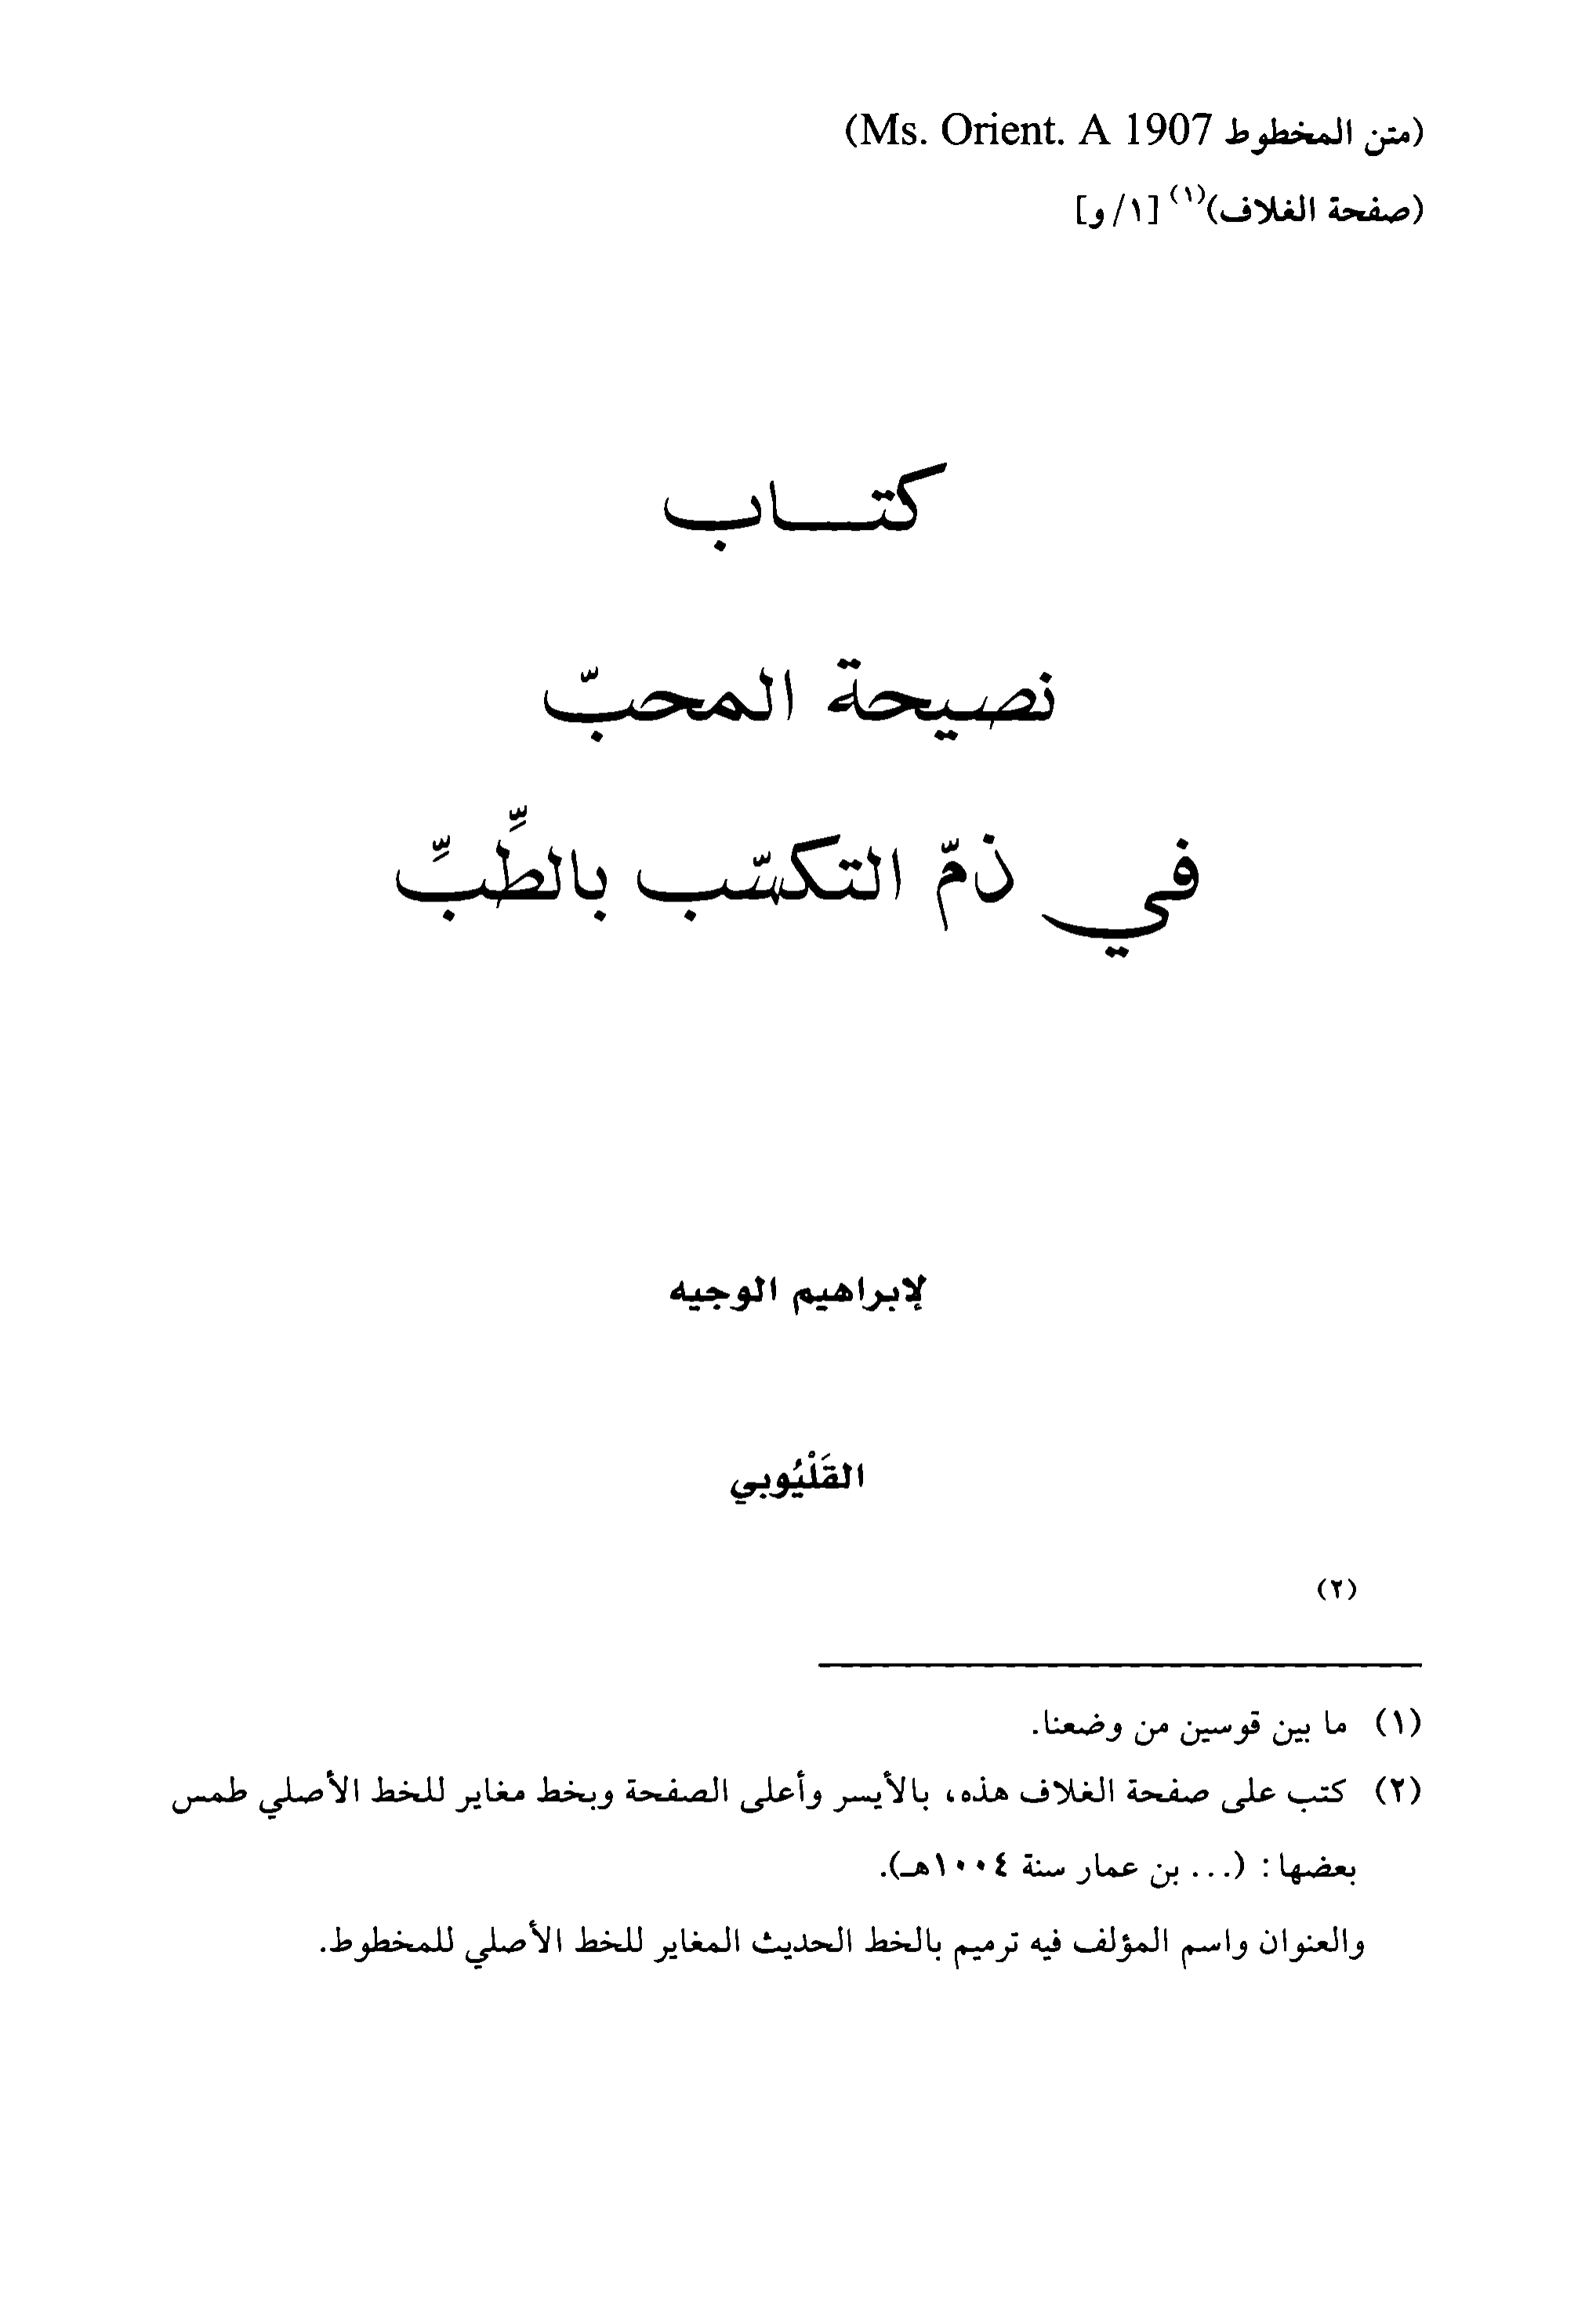 (متن المخطوط Ms. Orient. A 1907)
(صفحة الغلاف)(١) [١/ و]
كتـــاب
نصيحة المحبّ
في ذمّ التكسّب بالطِّبِّ
لإبراهيم الوجيه
القَلْيُوبي
(٢)
(١) ما بين قوسين من وضعنا.
(٢) كتب على صفحة الغلاف هذه، بالأيسر وأعلى الصفحة وبخط مغاير للخط الأصلي طمس
بعضها: (... بن عمار سنة ١٠٠٤هـ).
والعنوان واسم المؤلف فيه ترميم بالخط الحديث المغاير للخط الأصلي للمخطوط.